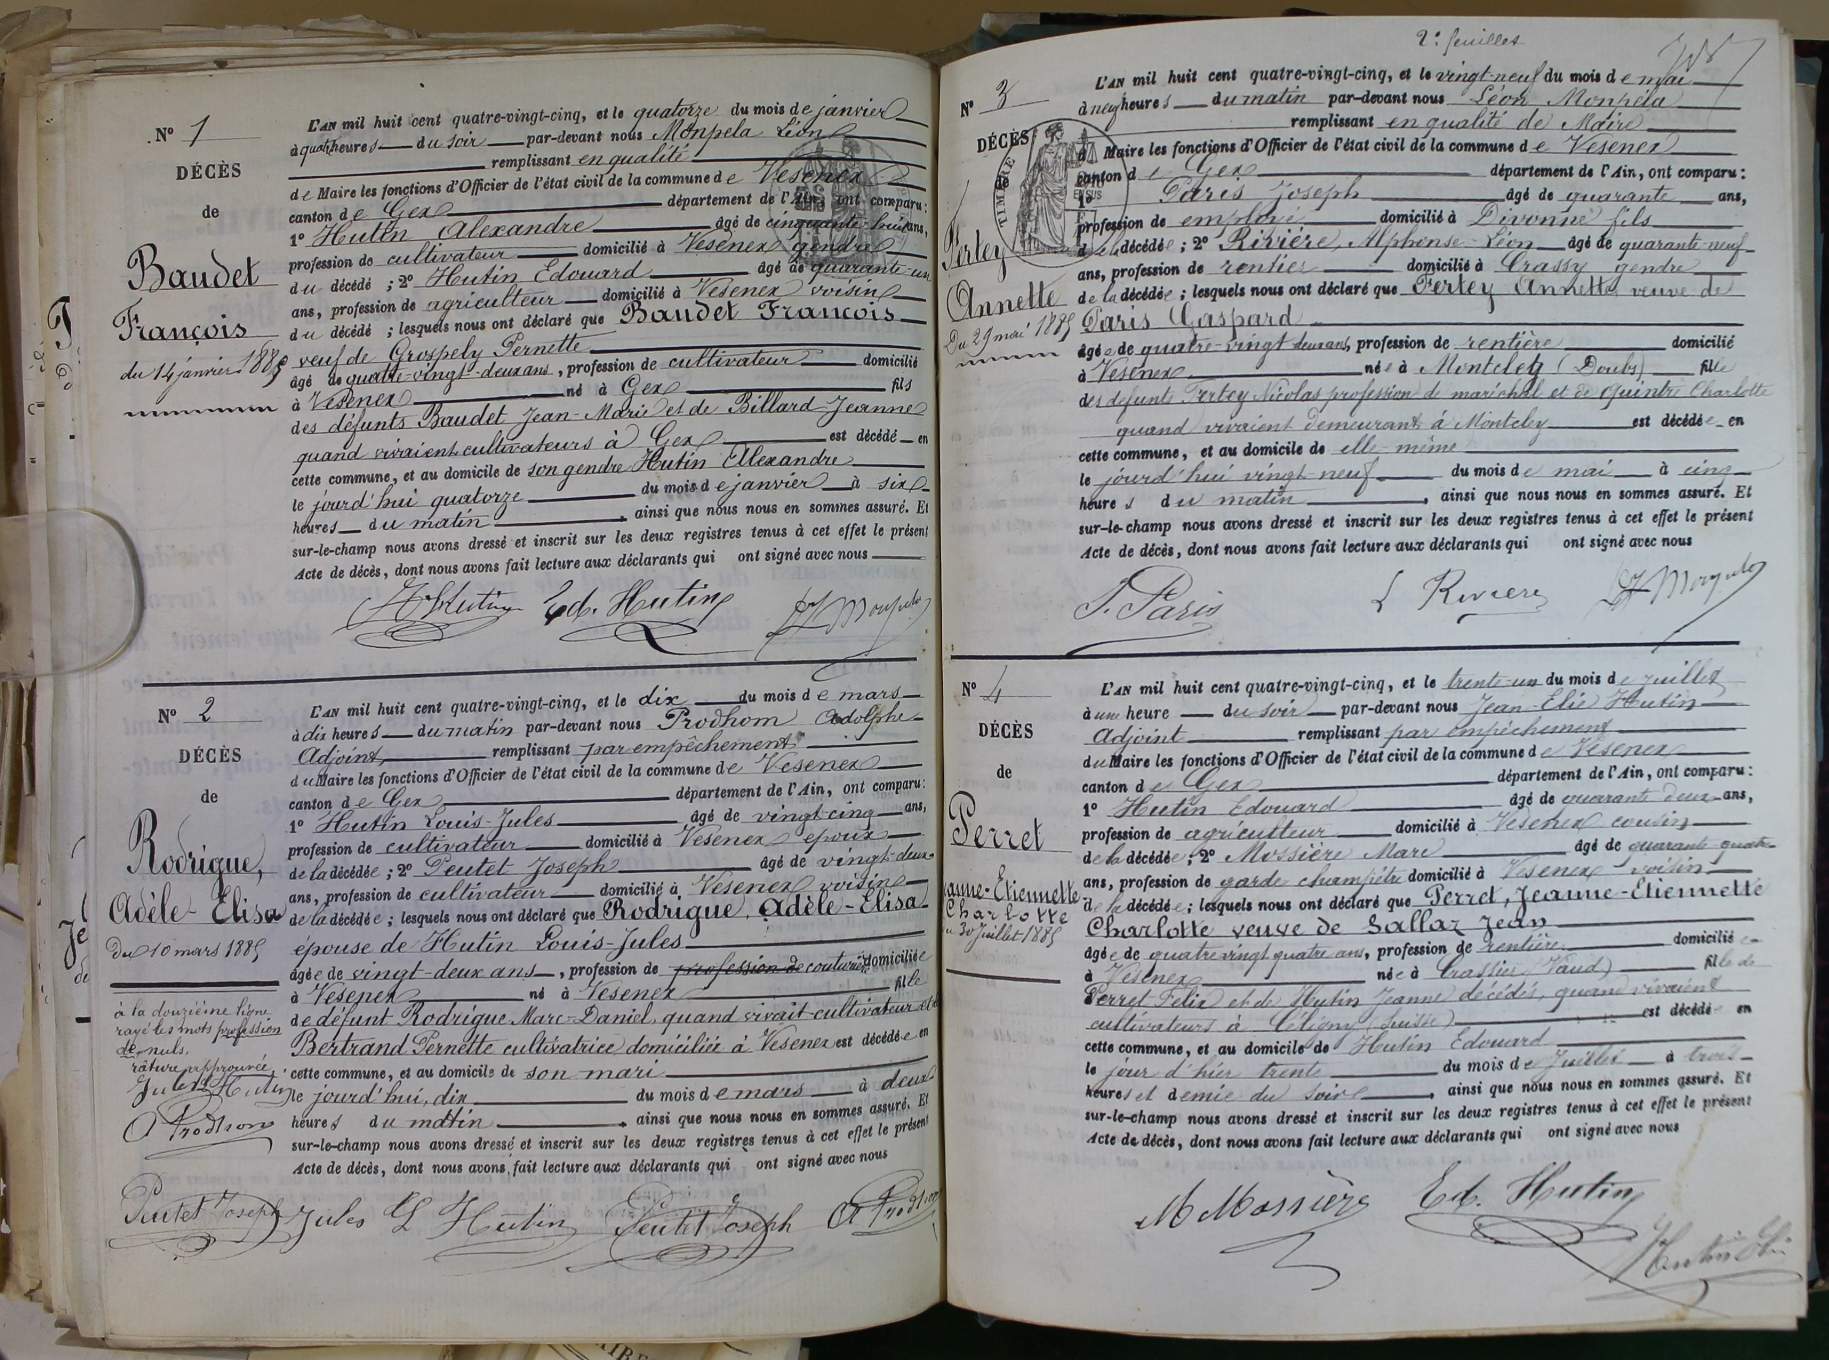 N° 1
DÉCÈS
de
Baudet
François
du 14 janvier 1885
L'AN mil huit cent quatre-vingt-cinq, et le quatorze du mois de janvier
à quatre heures du soir par-devant nous Monpela Léon
remplissant en qualité
de Maire les fonctions d'Officier de l'état civil de la commune de Vesenex
canton de Gex département de l'Ain, ont comparu:
1° Hutin Alexandre âgé de cinquante-huit ans,
profession de cultivateur domicilié à Vesenex gendre
du décédé; 2° Hutin Edouard âgé de quarante-un
ans, profession de agriculteur domicilié à Vesenex voisin
du décédé; lesquels nous ont déclaré que Baudet François
veuf de Grospely Pernette
âgé de quatre-vingt-deux ans, profession de cultivateur domicilié
à Vesenex né à Gex fils
des défunts Baudet Jean-Marie et de Billard Jeanne
quand vivaient cultivateurs à Gex est décédé en
cette commune, et au domicile de son gendre Hutin Alexandre
le jourd'hui quatorze du mois de janvier à six
heures du matin, ainsi que nous nous en sommes assuré. Et
sur-le-champ nous avons dressé et inscrit sur les deux registres tenus à cet effet le présent
Acte de décès, dont nous avons fait lecture aux déclarants qui ont signé avec nous
Hutin Ed. Hutin
N° 2
DÉCÈS
de
Rodrigue,
Adèle-Elisa
Du 10 mars 1885
à la douzième ligne
rayé les mots profession
de nuls.
rature approuvée.
Jules Hutin
A Prodhom
L'AN mil huit cent quatre-vingt-cinq, et le dix du mois de mars
à dix heures du matin par-devant nous Prodhom Adolphe
Adjoint, remplissant par empêchement
du Maire les fonctions d'Officier de l'état civil de la commune de Vesenex
canton de Gex département de l'Ain, ont comparu:
1° Hutin Louis-Jules âgé de vingt-cinq ans,
profession de cultivateur domicilié à Vesenex époux
de la décédée; 2° Peutet Joseph âgé de vingt-deux
ans, profession de cultivateur domicilié à Vesenex voisin
de la décédée; lesquels nous ont déclaré que Rodrigue, Adèle-Elisa
épouse de Hutin Louis-Jules
âgée de vingt-deux ans, profession de profession de couturière domiciliée
à Vesenex né à Vesenex fille
de défunt Rodrigue Marc-Daniel, quand vivait cultivateur et de
Bertrand Pernette cultivatrice domiciliée à Vesenex est décédée en
cette commune, et au domicile de son mari
le jourd'hui, dix du mois de mars à deux
heures du matin, ainsi que nous nous en sommes assuré. Et
sur-le-champ nous avons dressé et inscrit sur les deux registres tenus à cet effet le présent
Acte de décès, dont nous avons fait lecture aux déclarants qui ont signé avec nous
Peutet Joseph Jules L Hutin Peutet Joseph A Prodhom
2e feuilles
N° 3
DÉCÈS
de
Fertey
Annette
Du 29 mai 1885
TIMBRE
L'AN mil huit cent quatre-vingt-cinq, et le vingt-neuf du mois de mai
à neuf heures du matin par-devant nous Léon Monpéla
remplissant en qualité de Maire
à Maire les fonctions d'Officier de l'état civil de la commune de Vesenex
canton de Gex département de l'Ain, ont comparu:
1° Paris Joseph âgé de quarante ans,
profession de employé domicilié à Divonne fils
de la décédée; 2° Rivière Alphonse-Léon âgé de quarante-neuf
ans, profession de rentier domicilié à Crassy gendre
de la décédée; lesquels nous ont déclaré que Fertey Annette veuve de
Paris Gaspard
âgée de quatre-vingt deux ans, profession de rentière domicilié
à Vesenex née à Montcley (Doubs) fille
des défunts Fertey Nicolas profession de maréchal et de Quintre Charlotte
quand vivaient demeurant à Montcley est décédée en
cette commune, et au domicile de elle-même
le jourd'hui vingt neuf du mois de mai à cinq
heures du matin, ainsi que nous nous en sommes assuré. Et
sur-le-champ nous avons dressé et inscrit sur les deux registres tenus à cet effet le présent
Acte de décès, dont nous avons fait lecture aux déclarants qui ont signé avec nous
J. Paris L Rivière
N° 4
DÉCÈS
de
Perret
Jeanne-Etiennette
Charlotte
30 Juillet 1885
L'AN mil huit cent quatre-vingt-cinq, et le trente-un du mois de juillet
à une heure du soir par-devant nous Jean-Elie Hutin
Adjoint remplissant par empêchement
du Maire les fonctions d'Officier de l'état civil de la commune de Vesenex
canton de Gex département de l'Ain, ont comparu:
1° Hutin Edouard âgé de quarante deux ans,
profession de agriculteur domicilié à Vesenex cousin
de la décédée; 2° Mossière Marc âgé de quarante-quatre
ans, profession de garde champêtre domicilié à Vesenex voisin
de la décédée; lesquels nous ont déclaré que Perret, Jeanne-Etiennette
Charlotte veuve de Sallaz Jean
âgée de quatre vingt quatre ans, profession de rentière domiciliée
à Vesenex née à Crassier (Vaud) fille de
Perret Félix et de Hutin Jeanne décédés, quand vivaient
cultivateurs à Céligny (Suisse) est décédée en
cette commune, et au domicile de Hutin Edouard
le jour d'hier trente du mois de Juillet à trois
heures et demie du soir, ainsi que nous nous en sommes assuré. Et
sur-le-champ nous avons dressé et inscrit sur les deux registres tenus à cet effet le présent
Acte de décès, dont nous avons fait lecture aux déclarants qui ont signé avec nous
M Mossière Ed. Hutin
Hutin Elie